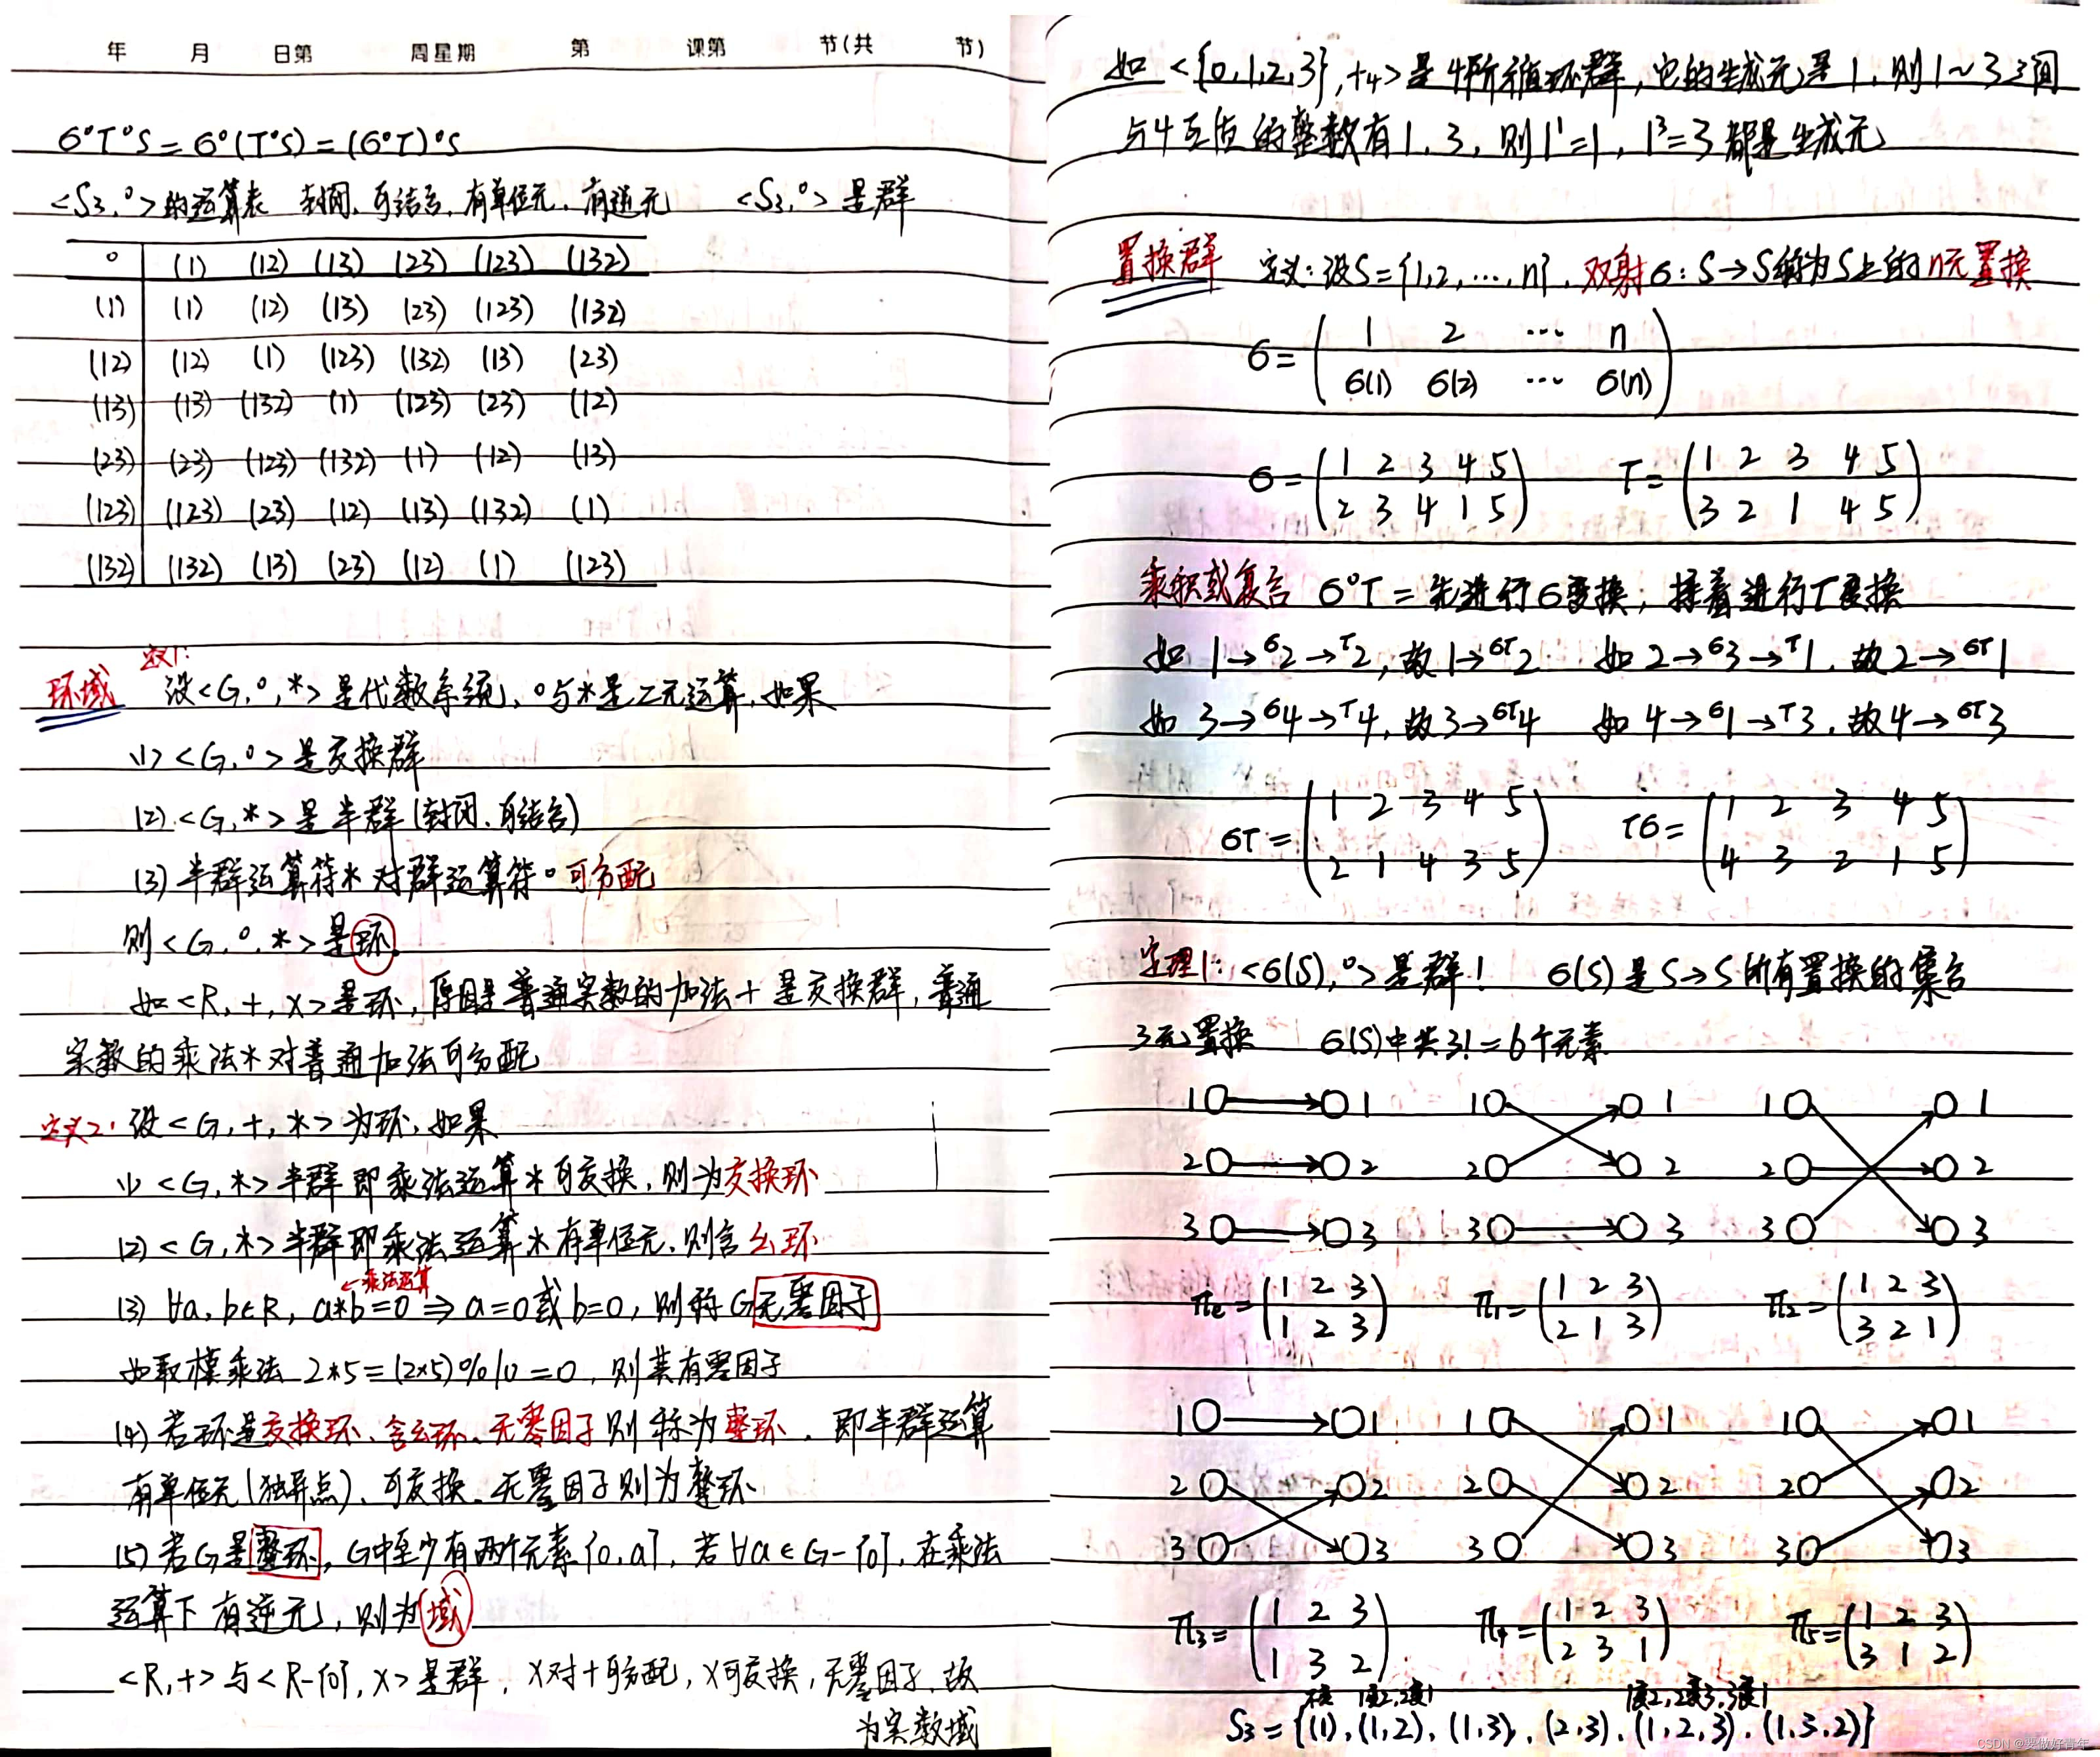 年 月 日第 周星期 第 课第 节(共 节)
6°T°S = 6°(T°S) = (6°T)°S
<S3,°>的运算表 封闭、可结合、有单位元、有逆元 <S3,°>是群
° (1) (12) (13) (23) (123) (132)
(1) (1) (12) (13) (23) (123) (132)
(12) (12) (1) (123) (132) (13) (23)
(13) (13) (132) (1) (123) (23) (12)
(23) (23) (123) (132) (1) (12) (13)
(123) (123) (23) (12) (13) (132) (1)
(132) (132) (13) (23) (12) (1) (123)
定义1:
环域 设<G,°,*>是代数系统,°与*是二元运算,如果
(1) <G,°>是交换群
(2) <G,*>是半群(封闭、可结合)
(3) 半群运算符*对群运算符°可分配
则<G,°,*>是环.
如<R,+,×>是环,原因是普通实数的加法+是交换群,普通
实数的乘法*对普通加法可分配
定义2: 设<G,+,*>为环,如果
(1) <G,*>半群即乘法运算*可交换,则为交换环
(2) <G,*>半群即乘法运算*有单位元,则含幺环
←乘法运算
(3) ∀a,b∈R, a*b=0⇒a=0或b=0,则称G无零因子
如取模乘法 2*5=(2×5)%10=0,则其有零因子
(4) 若环是交换环、含幺环、无零因子则称为整环,即半群运算
有单位元(独异点)、可交换、无零因子则为整环
(5) 若G是整环,G中至少有两个元素{0,a},若∀a∈G-{0},在乘法
运算下有逆元,则为域
<R,+>与<R-{0},×>是群,×对+可分配,×可交换,无零因子,故
为实数域
如<{0,1,2,3},+4>是4阶循环群,它的生成元是1,则1~3之间
与4互质的整数有1,3,则1¹=1,1³=3都是生成元
置换群 定义:设S={1,2,…,n},双射6:S→S称为S上的n元置换
6= ( 1 2 … n )
( 6(1) 6(2) … 6(n) )
6= ( 1 2 3 4 5 ) T= ( 1 2 3 4 5 )
( 2 3 4 1 5 ) ( 3 2 1 4 5 )
乘积或复合 6°T=先进行6变换,接着进行T变换
如 1→⁶2→ᵀ2,故1→⁶ᵀ2 如 2→⁶3→ᵀ1,故2→⁶ᵀ1
如 3→⁶4→ᵀ4,故3→⁶ᵀ4 如 4→⁶1→ᵀ3,故4→⁶ᵀ3
6T= ( 1 2 3 4 5 ) T6= ( 1 2 3 4 5 )
( 2 1 4 3 5 ) ( 4 3 2 1 5 )
定理1:<6(S),°>是群! 6(S)是S→S所有置换的集合
3元置换 6(S)中共3!=6个元素
1 1 1 1 1 1
2 2 2 2 2 2
3 3 3 3 3 3
πe= ( 1 2 3 ) π1= ( 1 2 3 ) π2= ( 1 2 3 )
( 1 2 3 ) ( 2 1 3 ) ( 3 2 1 )
1 1 1 1 1 1
2 2 2 2 2 2
3 3 3 3 3 3
π3= ( 1 2 3 ) π4= ( 1 2 3 ) π5= ( 1 2 3 )
( 1 3 2 ) ( 2 3 1 ) ( 3 1 2 )
1变2,2变1 1变2,2变3,3变1
S3={(1),(1,2),(1,3),(2,3),(1,2,3),(1,3,2)}
CSDN @要做好青年